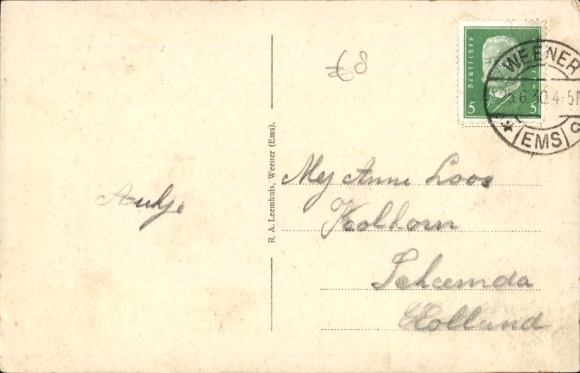 €8
Deutsches
5 5
WEENER
25.6.30.4-5N
* (EMS)
R. A. Leemhuis, Weener (Ems).
Aukje
Mej Anni Loos
Kolhorn
Scheemda
Holland